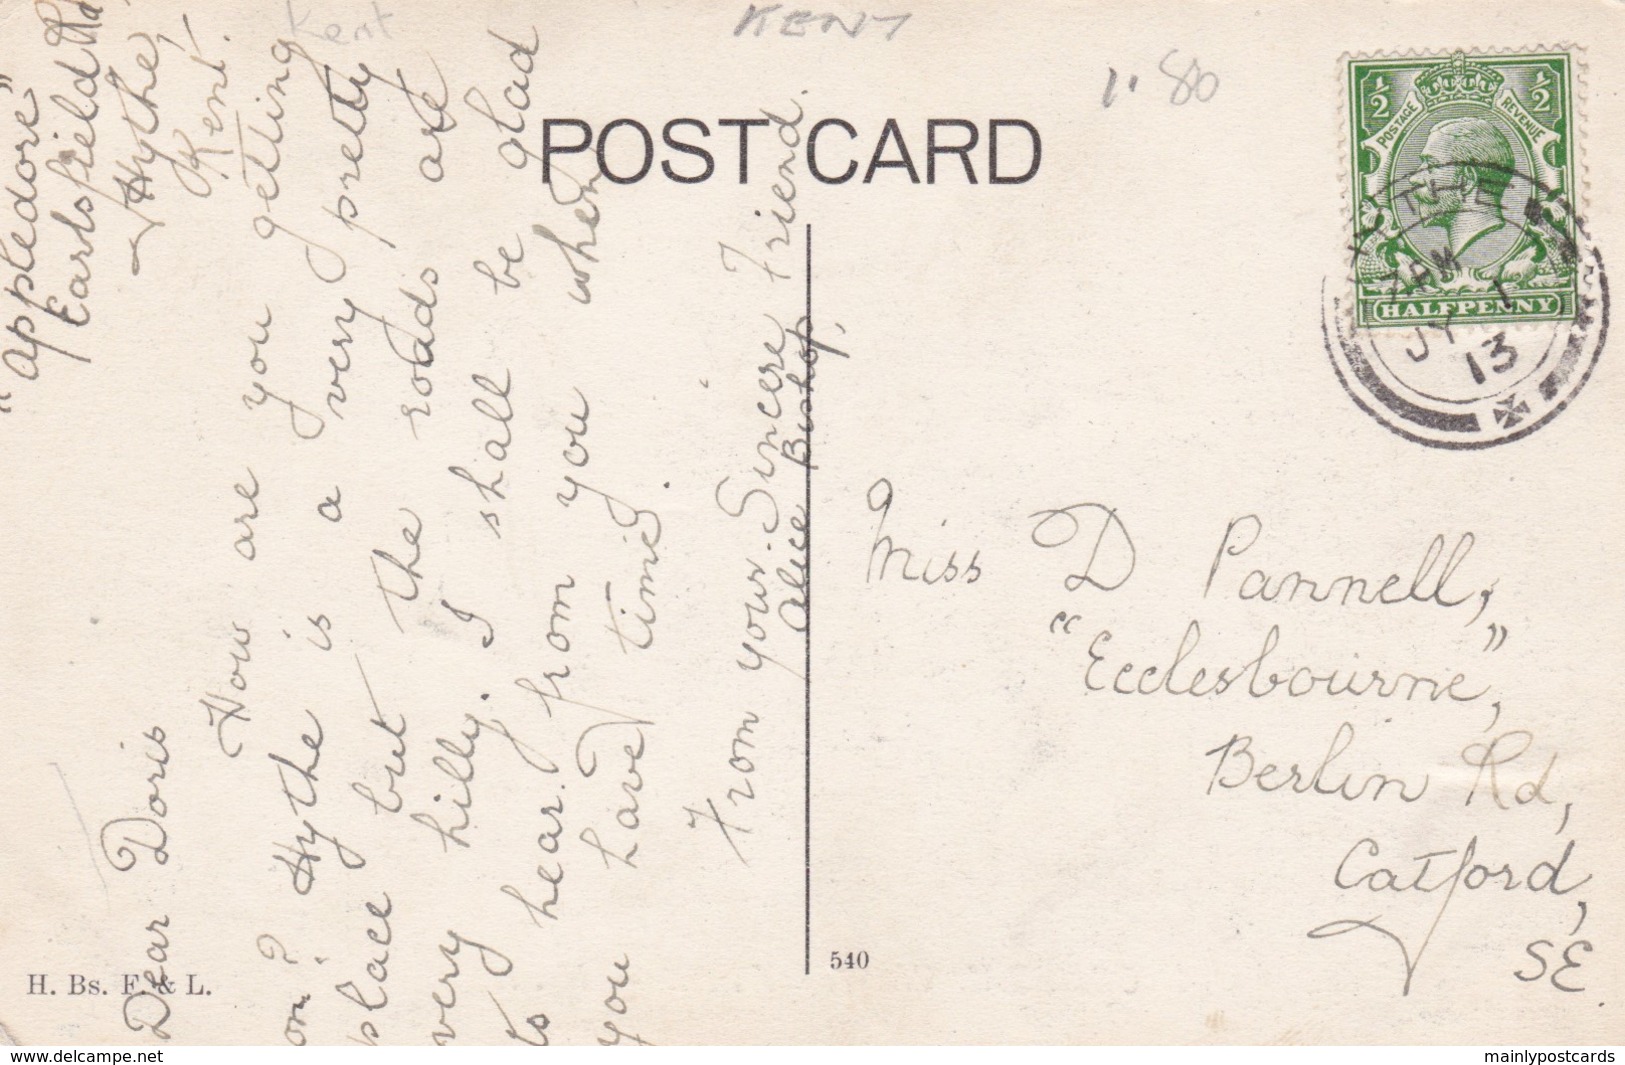 Kent
KENT
1.80
POST CARD
½ ½
POSTAGE REVENUE
HALFPENNY
HYTHE
7 PM
JY 1
13
"Appledore"
Earlsfield Rd
Hythe,
Kent.
Dear Doris
How are you getting
on? Hythe is a very pretty
place but the roads are
very hilly. I shall be glad
to hear from you when
you have time.
From your Sincere Friend.
Alice Bishop.
Miss D Pannell,
"Ecclesbourne",
Berlin Rd,
Catford,
SE.
H. Bs. F. & L.
540
www.delcampe.net
mainlypostcards